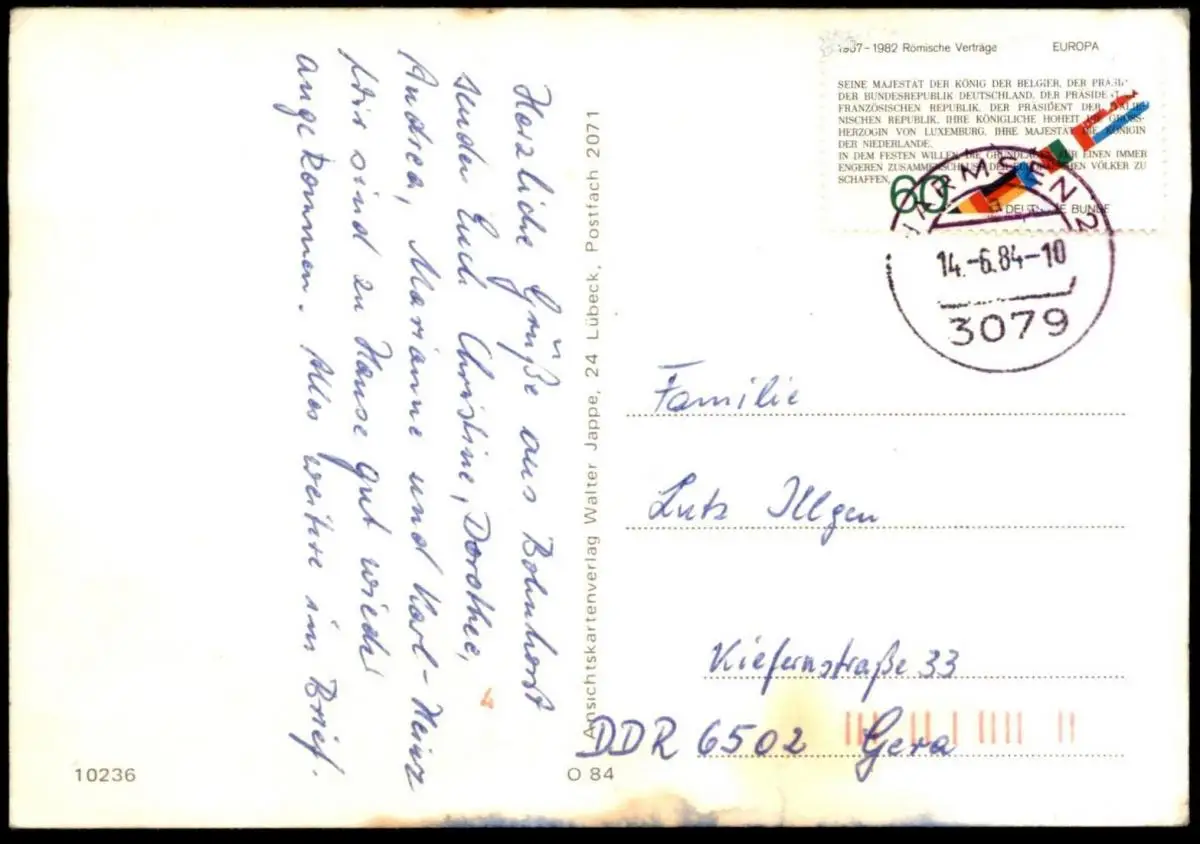 Herzliche Grüße aus Bohnhorst
senden Euch Christine, Dorothee,
Andrea, Marianne und Karl-Heinz
Wir sind zu Hause gut wieder
angekommen. Alles weitere im Brief.
4
Ansichtskartenverlag Walter Jappe, 24 Lübeck, Postfach 2071
10236
O 84
1957-1982 Römische Verträge EUROPA
SEINE MAJESTÄT DER KÖNIG DER BELGIER, DER
DER BUNDESREPUBLIK DEUTSCHLAND, DER
FRANZÖSISCHEN REPUBLIK, DER PRÄSIDENT DER ITALIE-
NISCHEN REPUBLIK, IHRE KÖNIGLICHE HOHEIT DIE GROSS-
HERZOGIN VON LUXEMBURG, IHRE MAJESTÄT DIE KÖNIGIN
DER NIEDERLANDE.
IN DEM FESTEN WILLEN, DIE GRUNDLAGEN FÜR EINEN IMMER
ENGEREN ZUSAMMENSCHLUSS DER EUROPÄISCHEN VÖLKER ZU
SCHAFFEN,
60
DEUTSCHE BUNDE
WARMSEN 2
14.-6.84-10
3079
Familie
Lutz Illgen
Kiefernstraße 33
DDR 6502 Gera